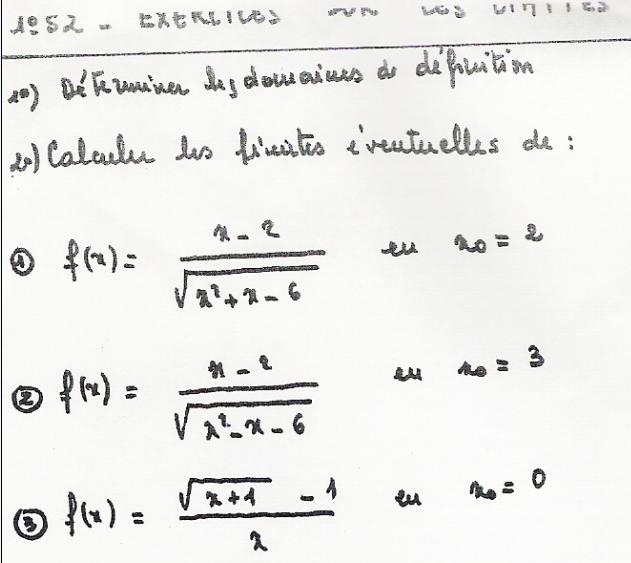 1º S2 - EXERCICES SUR LES LIMITES
1º) Déterminer les domaines de définition
2º) Calculer les limites éventuelles de :
① f(x) = x - 2 / √x² + x - 6 en x₀ = 2
② f(x) = x - 2 / √x² - x - 6 en x₀ = 3
③ f(x) = √x + 1 - 1 / x en x₀ = 0